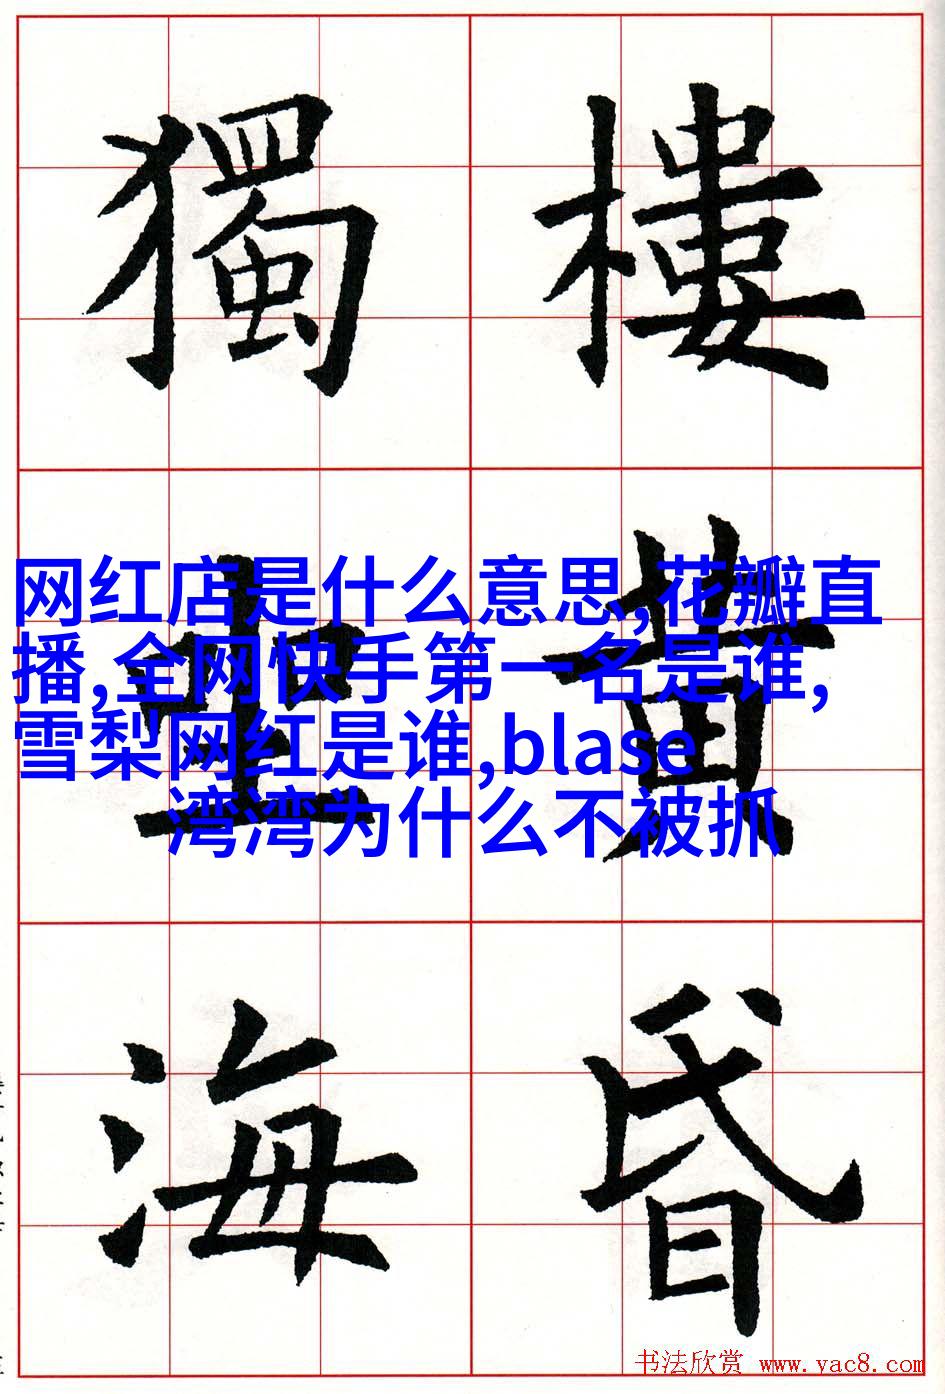 樓黄昏
獨海
网红店是什么意思,花瓣直
播,全网快手第一名是谁,
雪梨网红是谁,blase
湾湾为什么不被抓
书法欣赏 www.yac8.com